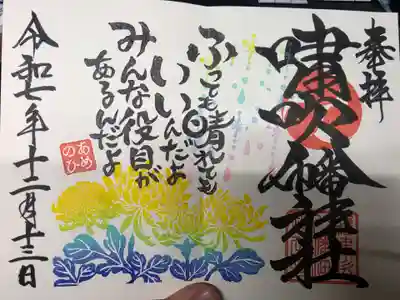 奉拝
嘯吹八幡神社
ふっても晴れても
いいんだよ
みんな役目が
あるんだよ
あめ
のひ
令和七年十二月十三日